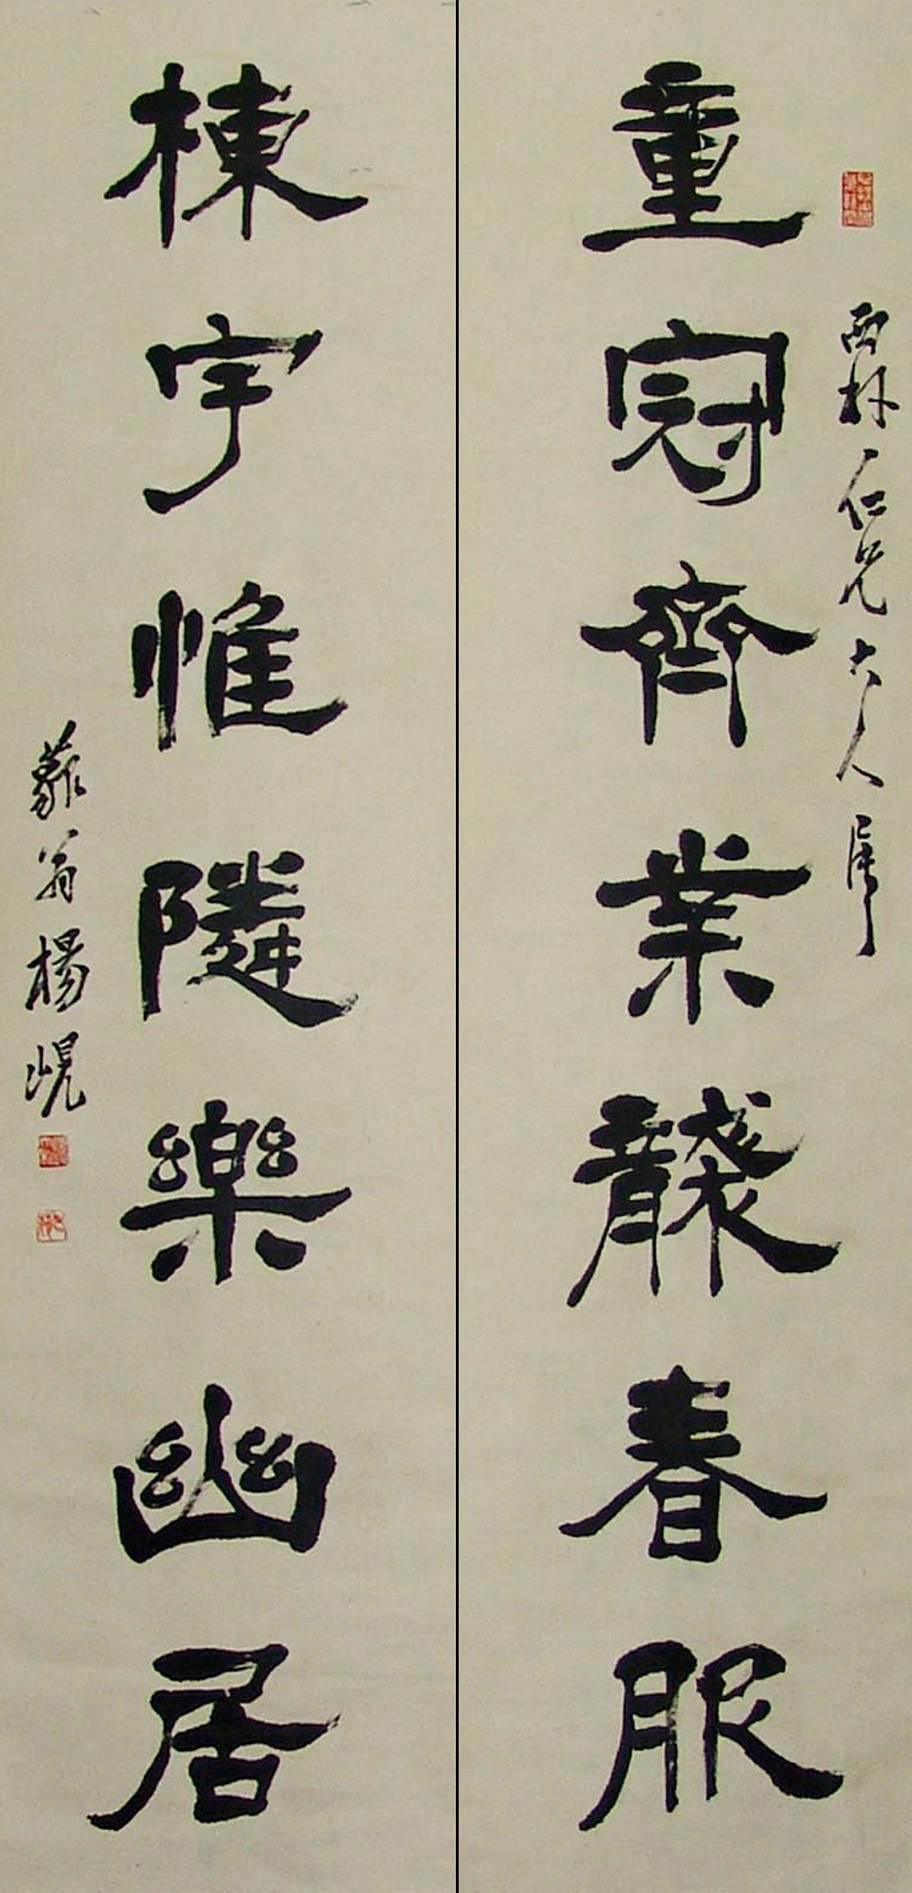 西林仁兄大人屬
童冠齊業襲春服
棟宇惟隣樂幽居
藐翁楊峴